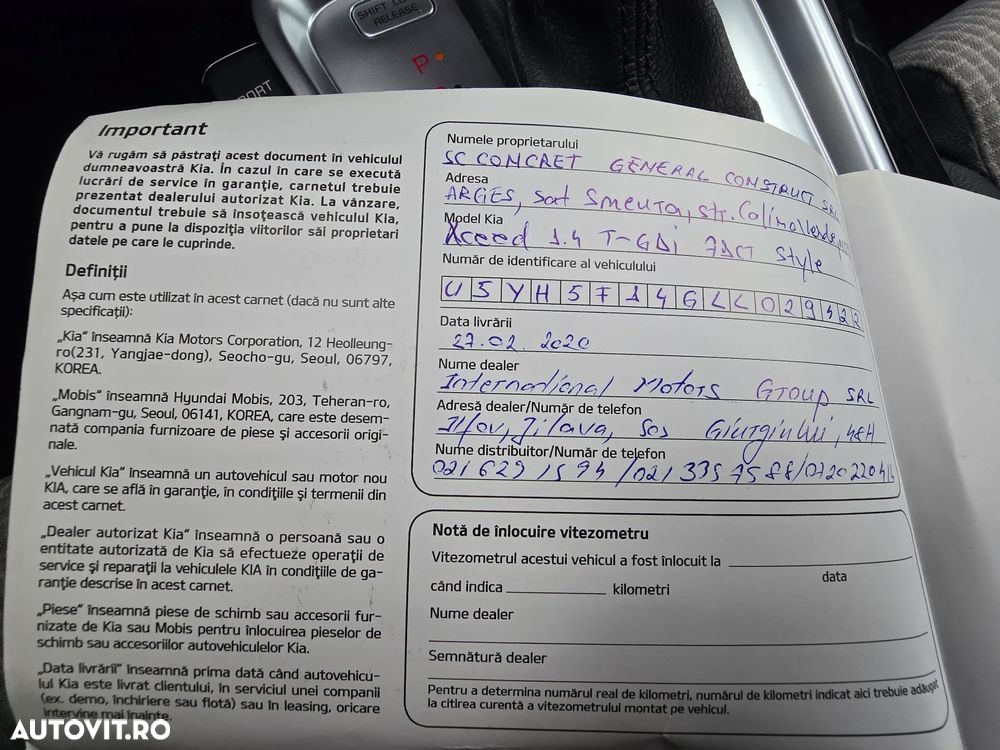 SHIFT LOCK
RELEASE
P
PORT
Important
Vă rugăm să păstrați acest document în vehiculul
dumneavoastră Kia. În cazul în care se execută
lucrări de service în garanție, carnetul trebuie
prezentat dealerului autorizat Kia. La vânzare,
documentul trebuie să însoțească vehiculul Kia,
pentru a pune la dispoziția viitorilor săi proprietari
datele pe care le cuprinde.
Definiții
Așa cum este utilizat în acest carnet (dacă nu sunt alte
specificații):
„Kia” înseamnă Kia Motors Corporation, 12 Heolleung-
ro(231, Yangjae-dong), Seocho-gu, Seoul, 06797,
KOREA.
„Mobis” înseamnă Hyundai Mobis, 203, Teheran-ro,
Gangnam-gu, Seoul, 06141, KOREA, care este desem-
nată compania furnizoare de piese și accesorii origi-
nale.
„Vehicul Kia” înseamnă un autovehicul sau motor nou
KIA, care se află în garanție, în condițiile și termenii din
acest carnet.
„Dealer autorizat Kia” înseamnă o persoană sau o
entitate autorizată de Kia să efectueze operații de
service și reparații la vehiculele KIA în condițiile de ga-
ranție descrise în acest carnet.
„Piese” înseamnă piese de schimb sau accesorii fur-
nizate de Kia sau Mobis pentru înlocuirea pieselor de
schimb sau accesoriilor autovehiculelor Kia.
„Data livrării” înseamnă prima dată când autovehicu-
lul Kia este livrat clientului, în serviciul unei companii
(ex. demo, închiriere sau flotă) sau în leasing, oricare
intervine mai înainte.
Numele proprietarului
SC CONCRET GENERAL CONSTRUCT SRL
Adresa
ARGES, sat Smeura, str.
Model Kia
Xceed 1.4 T-GDi 7DCT Style
Număr de identificare al vehiculului
U5YH5F14GLL029422
Data livrării
27.02.2020
Nume dealer
International Motors Group SRL
Adresă dealer/Număr de telefon
Ilfov, Jilava, Sos Giurgiului, 48H
Nume distribuitor/Număr de telefon
021 629 1594 /021 335 75 88/
Notă de înlocuire vitezometru
Vitezometrul acestui vehicul a fost înlocuit la
data
când indica kilometri
Nume dealer
Semnătură dealer
Pentru a determina numărul real de kilometri, numărul de kilometri indicat aici trebuie adăugat
la citirea curentă a vitezometrului montat pe vehicul.
AUTOVIT.RO